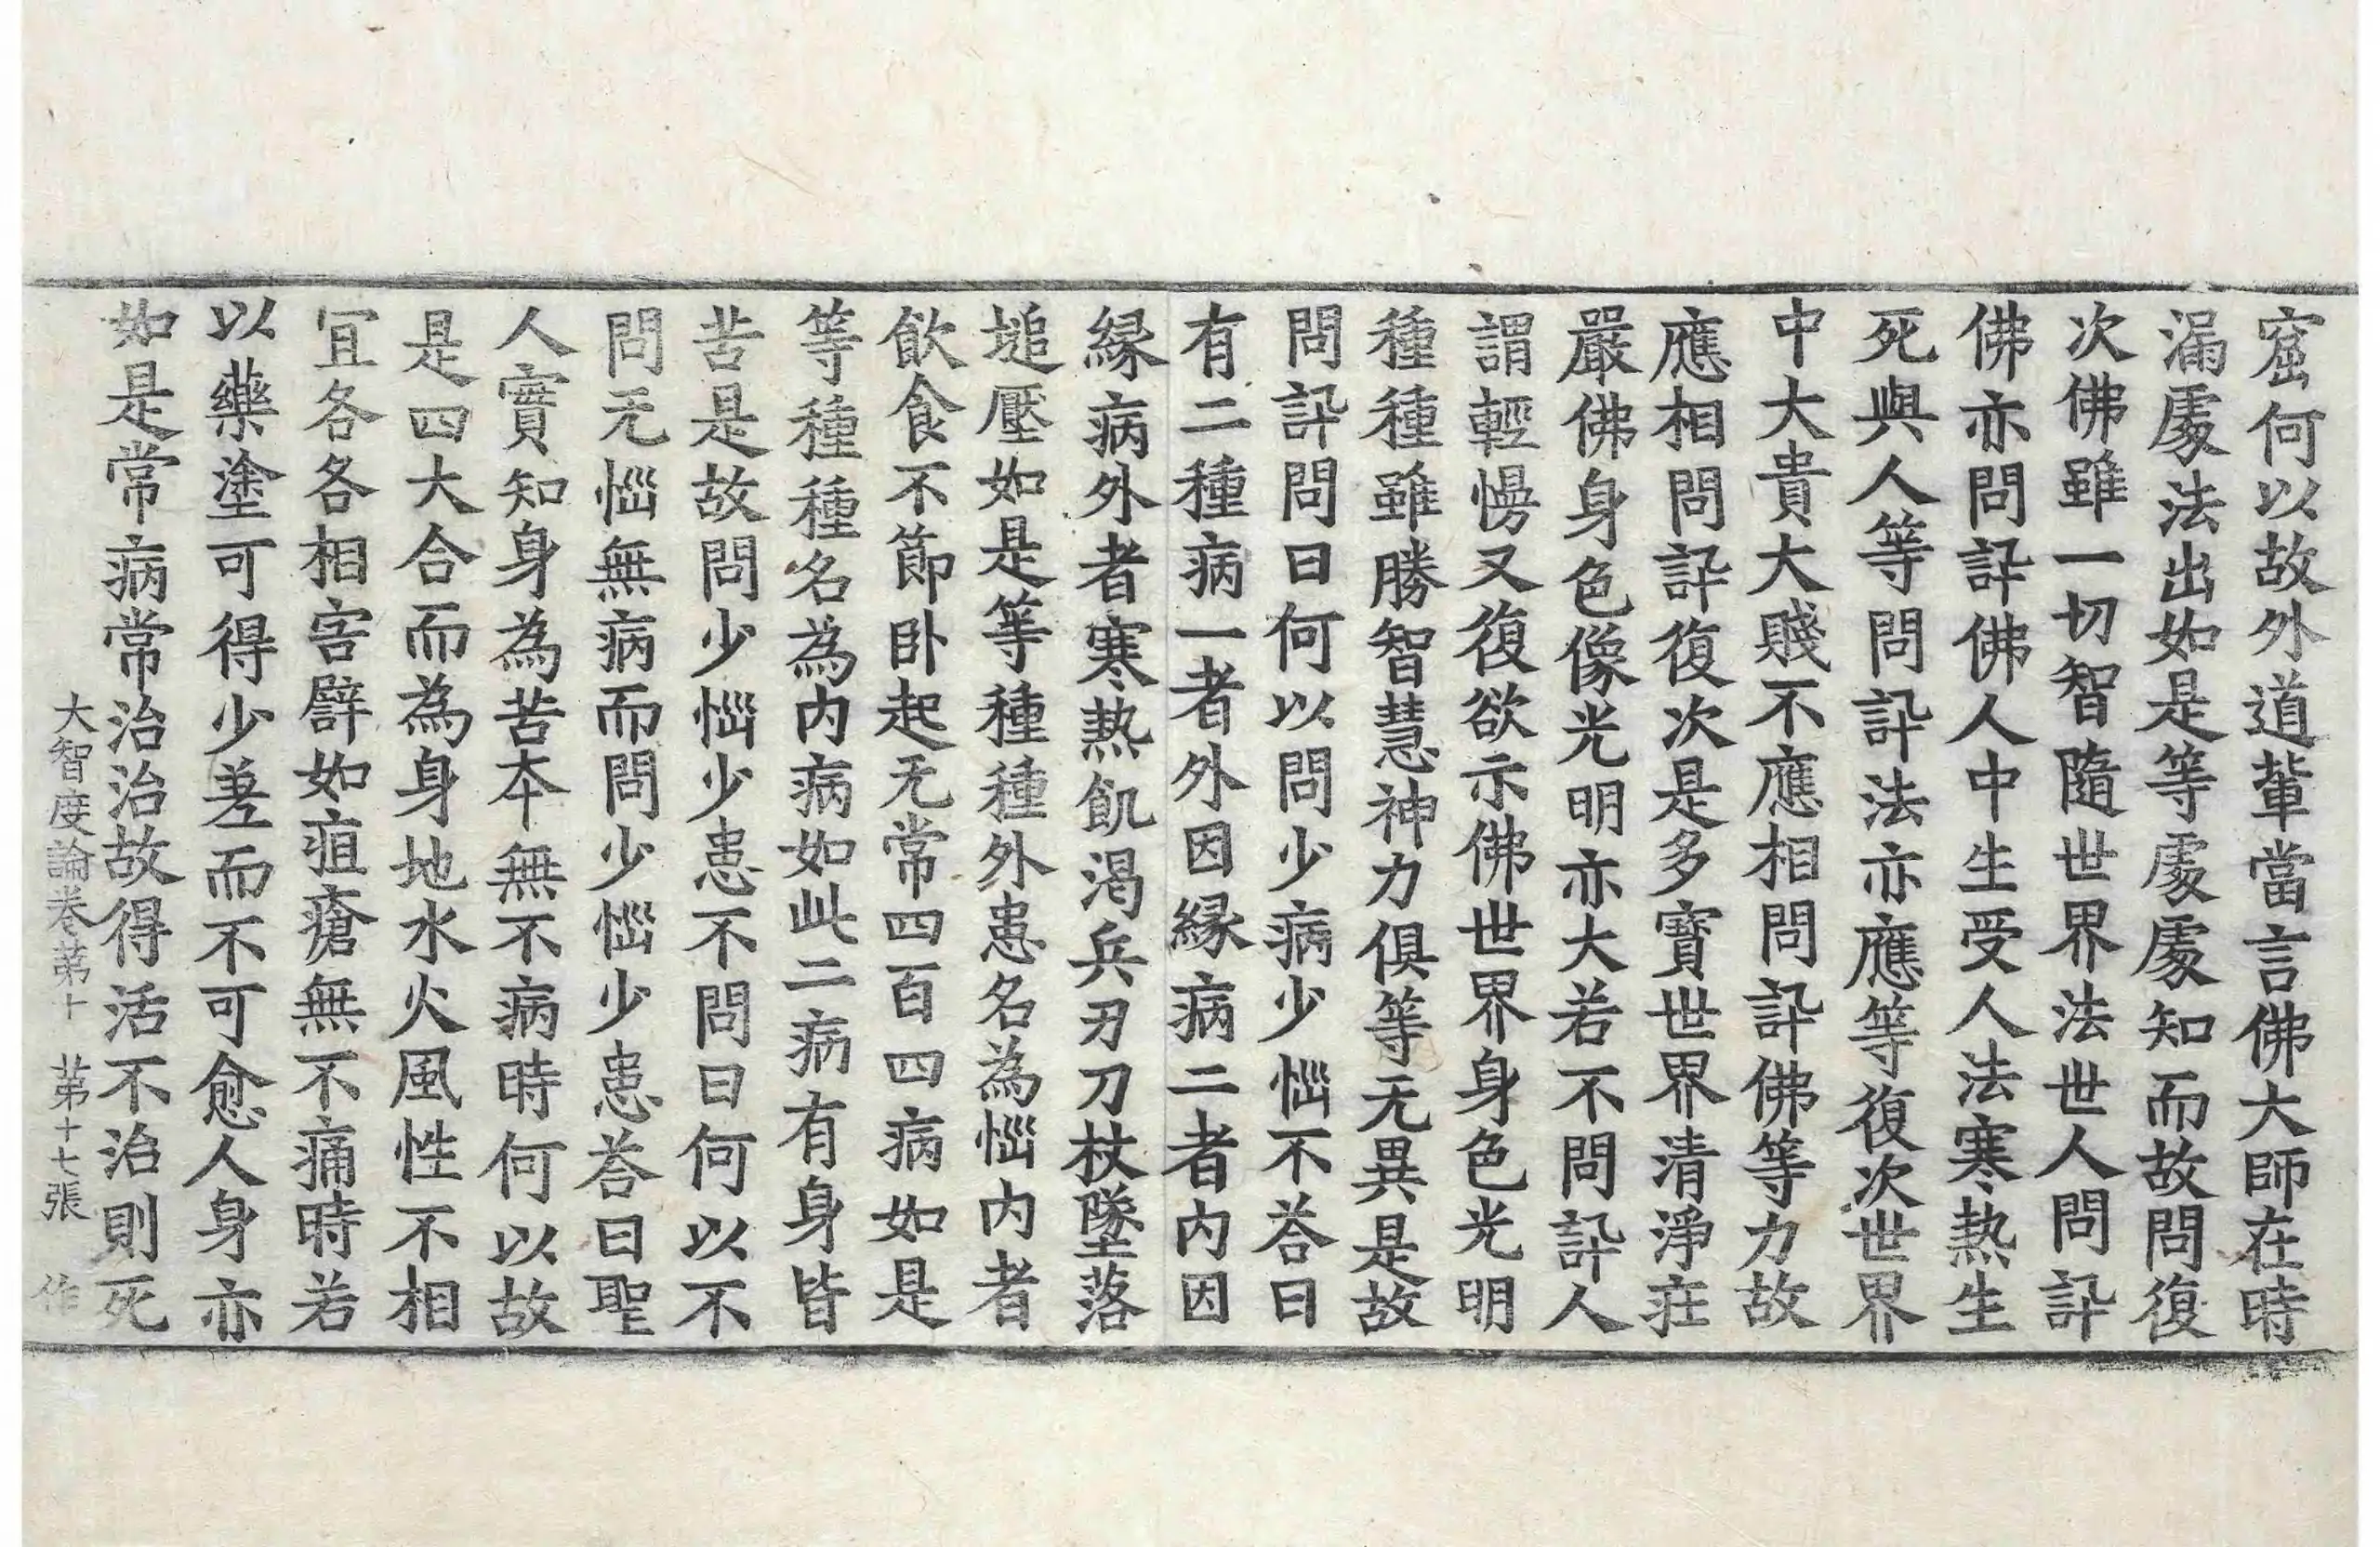 窟何以故外道輩當言佛大師在時
漏處法出如是等處處知而故問復
次佛雖一切智隨世界法世人問訊
佛亦問訊佛人中生受人法寒熱生
死與人等問訊法亦應等復次世界
中大貴大賤不應相問訊佛等力故
應相問訊復次是多寶世界清淨莊
嚴佛身色像光明亦大若不問訊人
謂輕慢又復欲示佛世界身色光明
種種雖勝智慧神力俱等无異是故
問訊問曰何以問少病少惱不荅曰
有二種病一者外因緣病二者內因
緣病外者寒熱飢渴兵刃刀杖墜落
塠壓如是等種種外患名為惱內者
飲食不節卧起无常四百四病如是
等種種名為內病如此二病有身皆
苦是故問少惱少患不問曰何以不
問无惱無病而問少惱少患荅曰聖
人實知身為苦本無不病時何以故
是四大合而為身地水火風性不相
冝各各相害譬如疽瘡無不痛時若
以藥塗可得少差而不可愈人身亦
如是常病常治治故得活不治則死
大智度論卷苐十　苐十七張　作